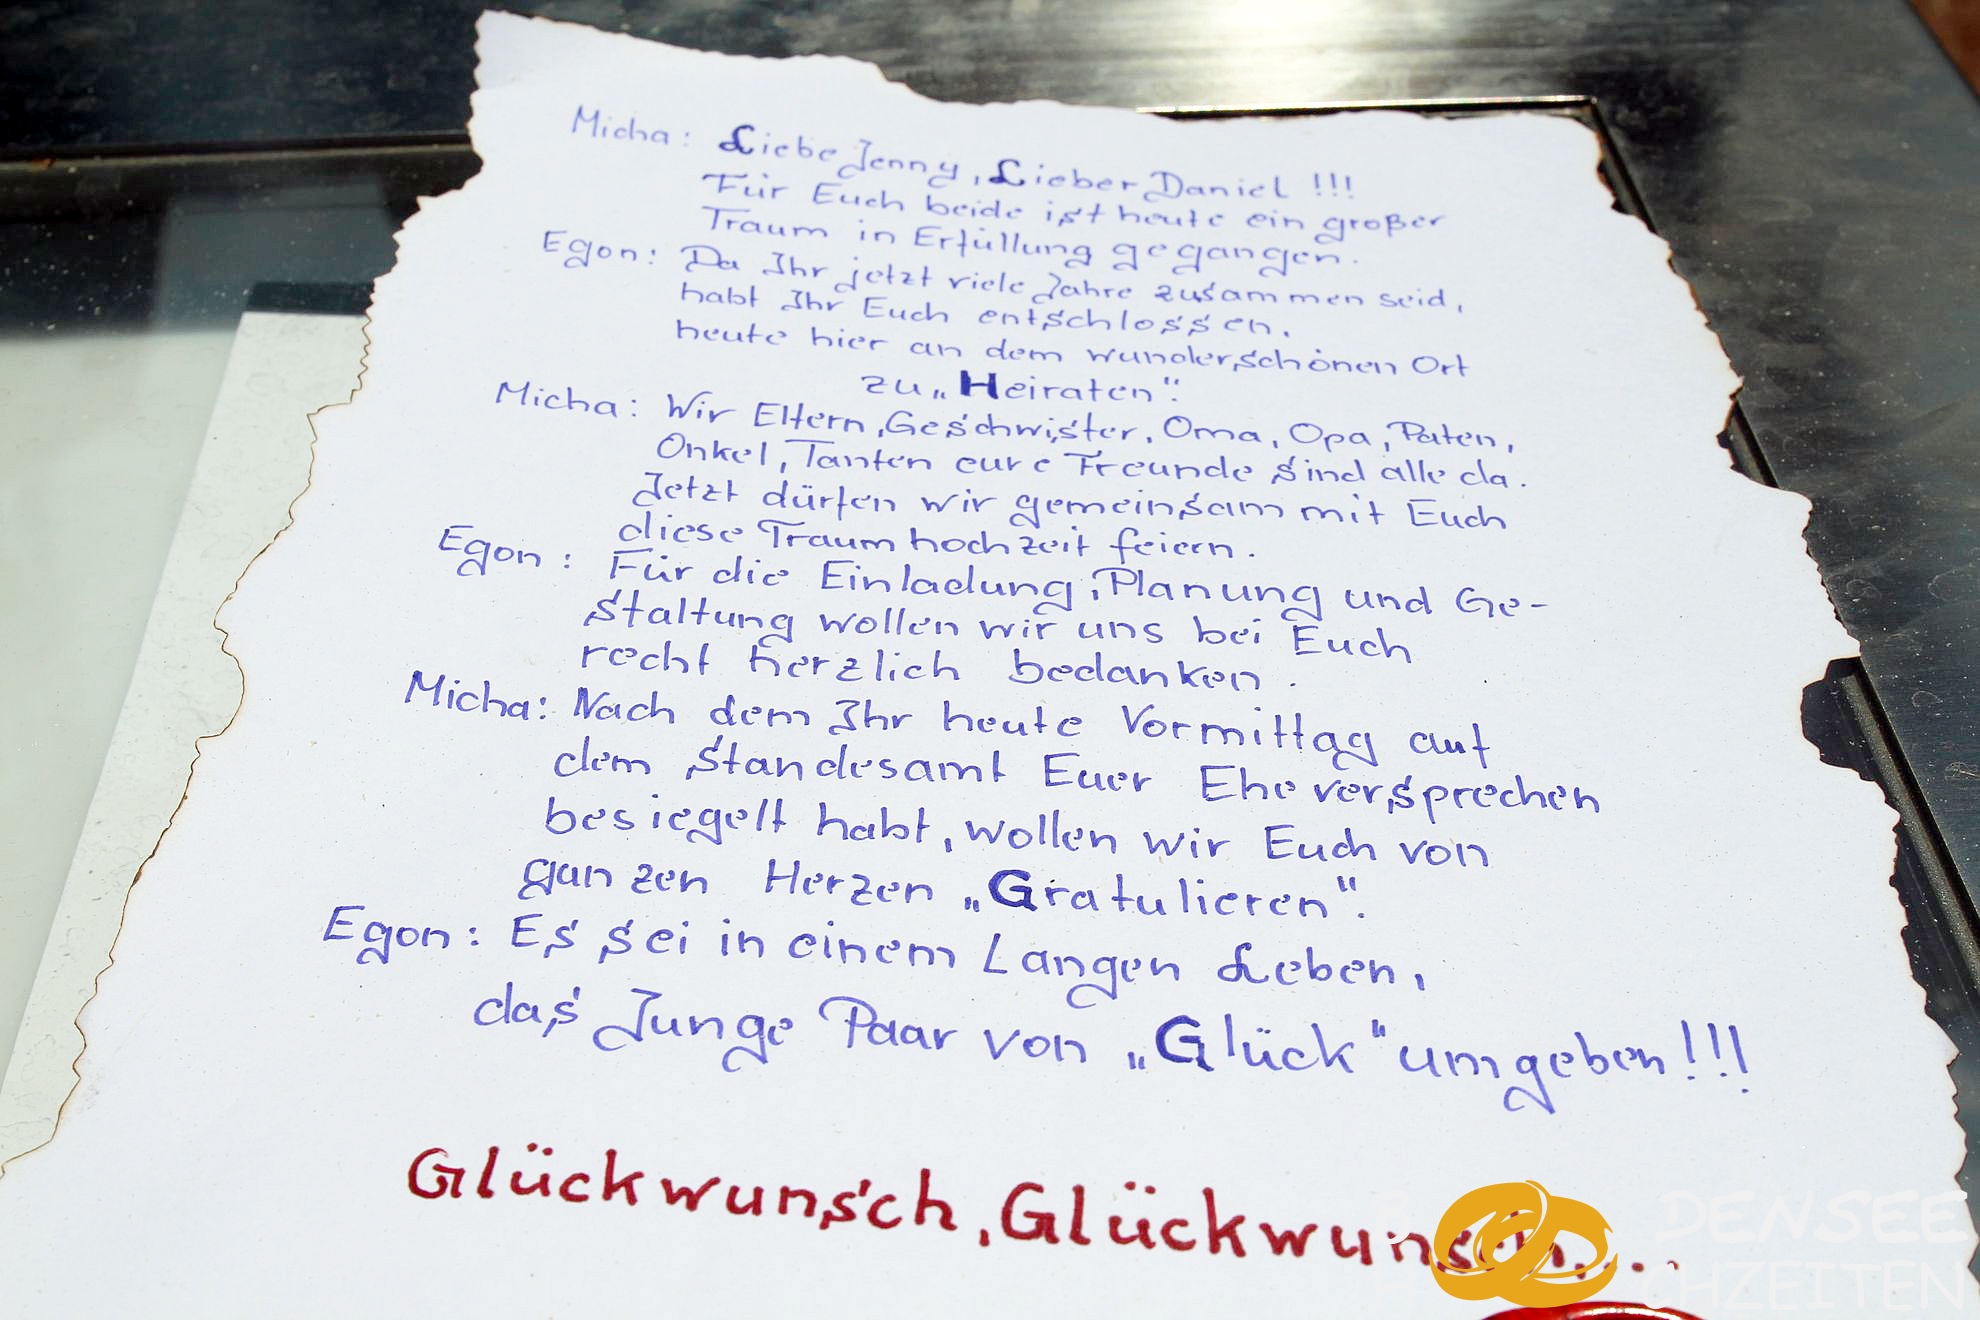 Micha: Liebe Jenny, Lieber Daniel !!!
Für Euch beide ist heute ein großer
Traum in Erfüllung gegangen.
Egon: Da Ihr jetzt viele Jahre zusammen seid,
habt Ihr Euch entschlossen,
heute hier an dem wunderschönen Ort
zu „Heiraten".
Micha: Wir Eltern, Geschwister, Oma, Opa, Paten,
Onkel, Tanten eure Freunde sind alle da.
Jetzt dürfen wir gemeinsam mit Euch
diese Traumhochzeit feiern.
Egon: Für die Einladung, Planung und Ge-
staltung wollen wir uns bei Euch
recht herzlich bedanken.
Micha: Nach dem Ihr heute Vormittag auf
dem Standesamt Euer Eheversprechen
besiegelt habt, wollen wir Euch von
ganzen Herzen „Gratulieren".
Egon: Es sei in einem Langen Leben,
das Junge Paar von „Glück" umgeben!!!
Glückwunsch, Glückwunsch....
DENSEE
CHZEITEN